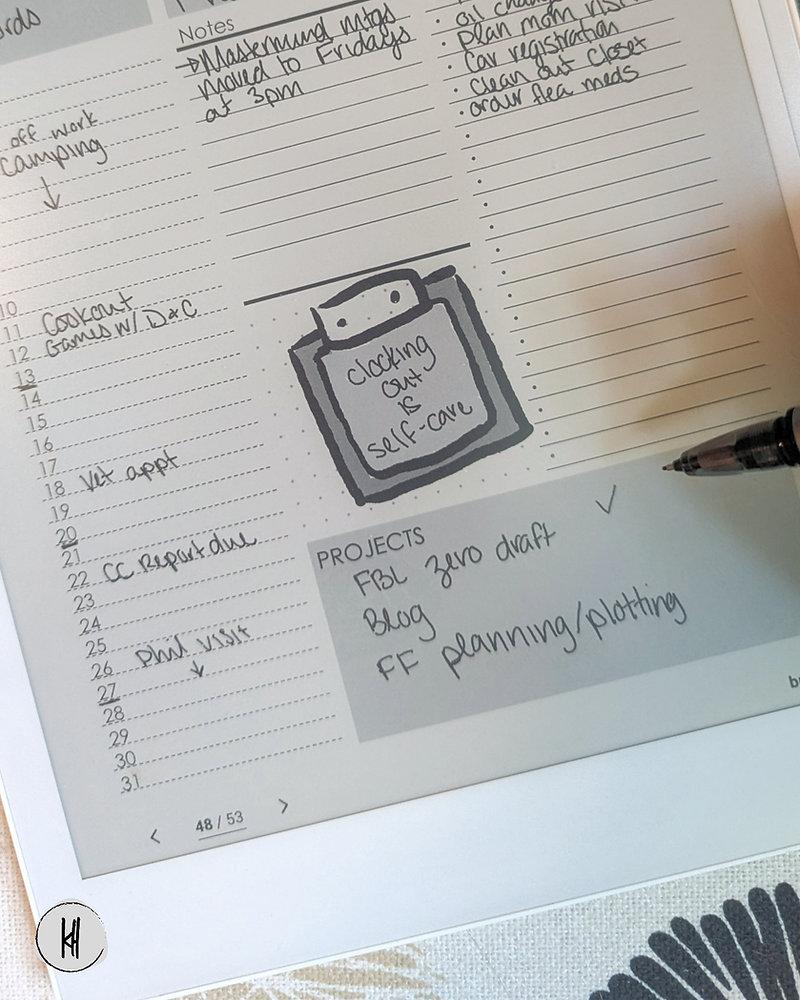 Notes
→Mastermind mtgs
moved to Fridays
at 3pm
• oil
• plan mom
• car registration
• clean out closet
• order flea meds
off work
camping
↓
10
11 Cookout
12 Games w/ D&C
13
14
15
16
17
18 Vet appt
19
20
21
22 CC Report due
23
24
25
26 Phil visit
27 ↓
28
29
30
31
clocking
out
is
self-care
PROJECTS
FBL zero draft ✓
Blog
FF planning/plotting
< 48 / 53 >
KH